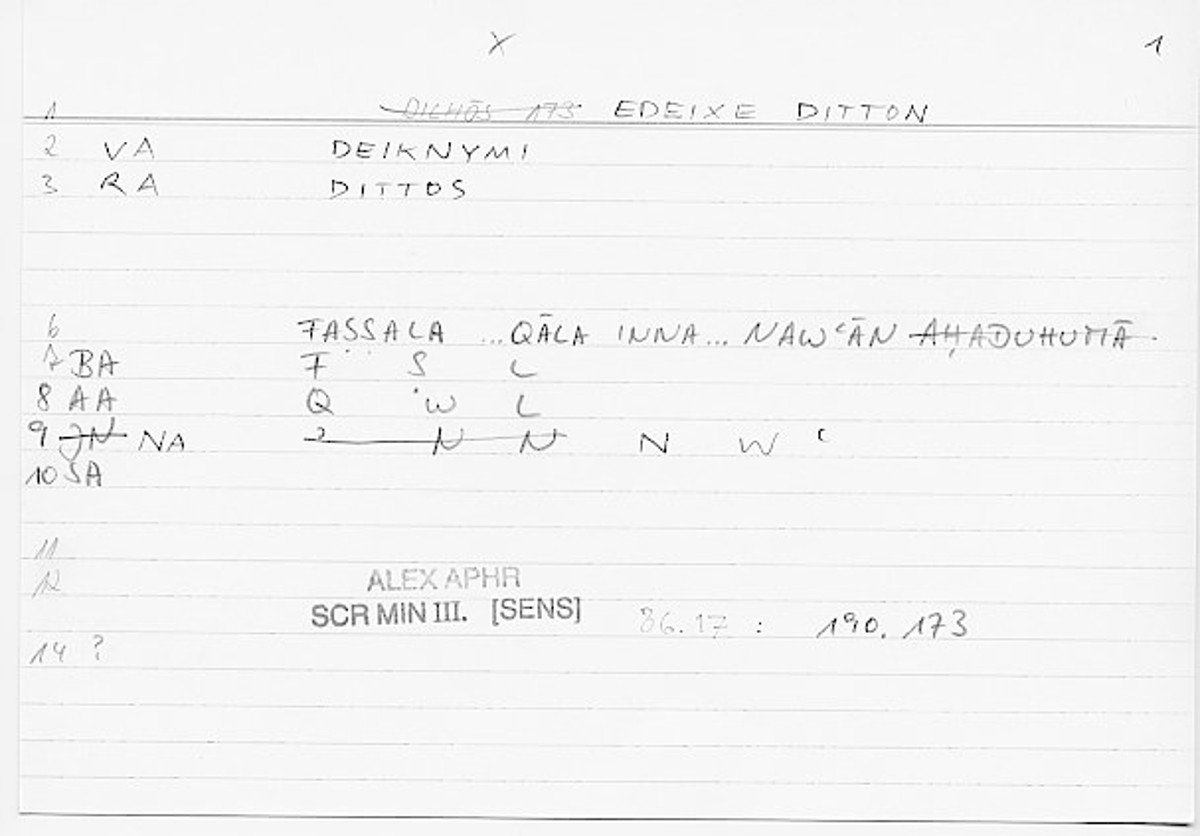 X 1
1 DICHŌS 173 EDEIXE DITTON
2 VA DEIKNYMI
3 RA DITTOS
6 FAṢṢALA ... QĀLA INNA ... NAWʿĀN AḤADUHUMĀ
7 BA F Ṣ L
8 AA Q W L
9 JN NA ʾ N N N W ʿ
10 SA
11
12
ALEX APHR
SCR MIN III. [SENS] 36.17 : 190. 173
14 ?